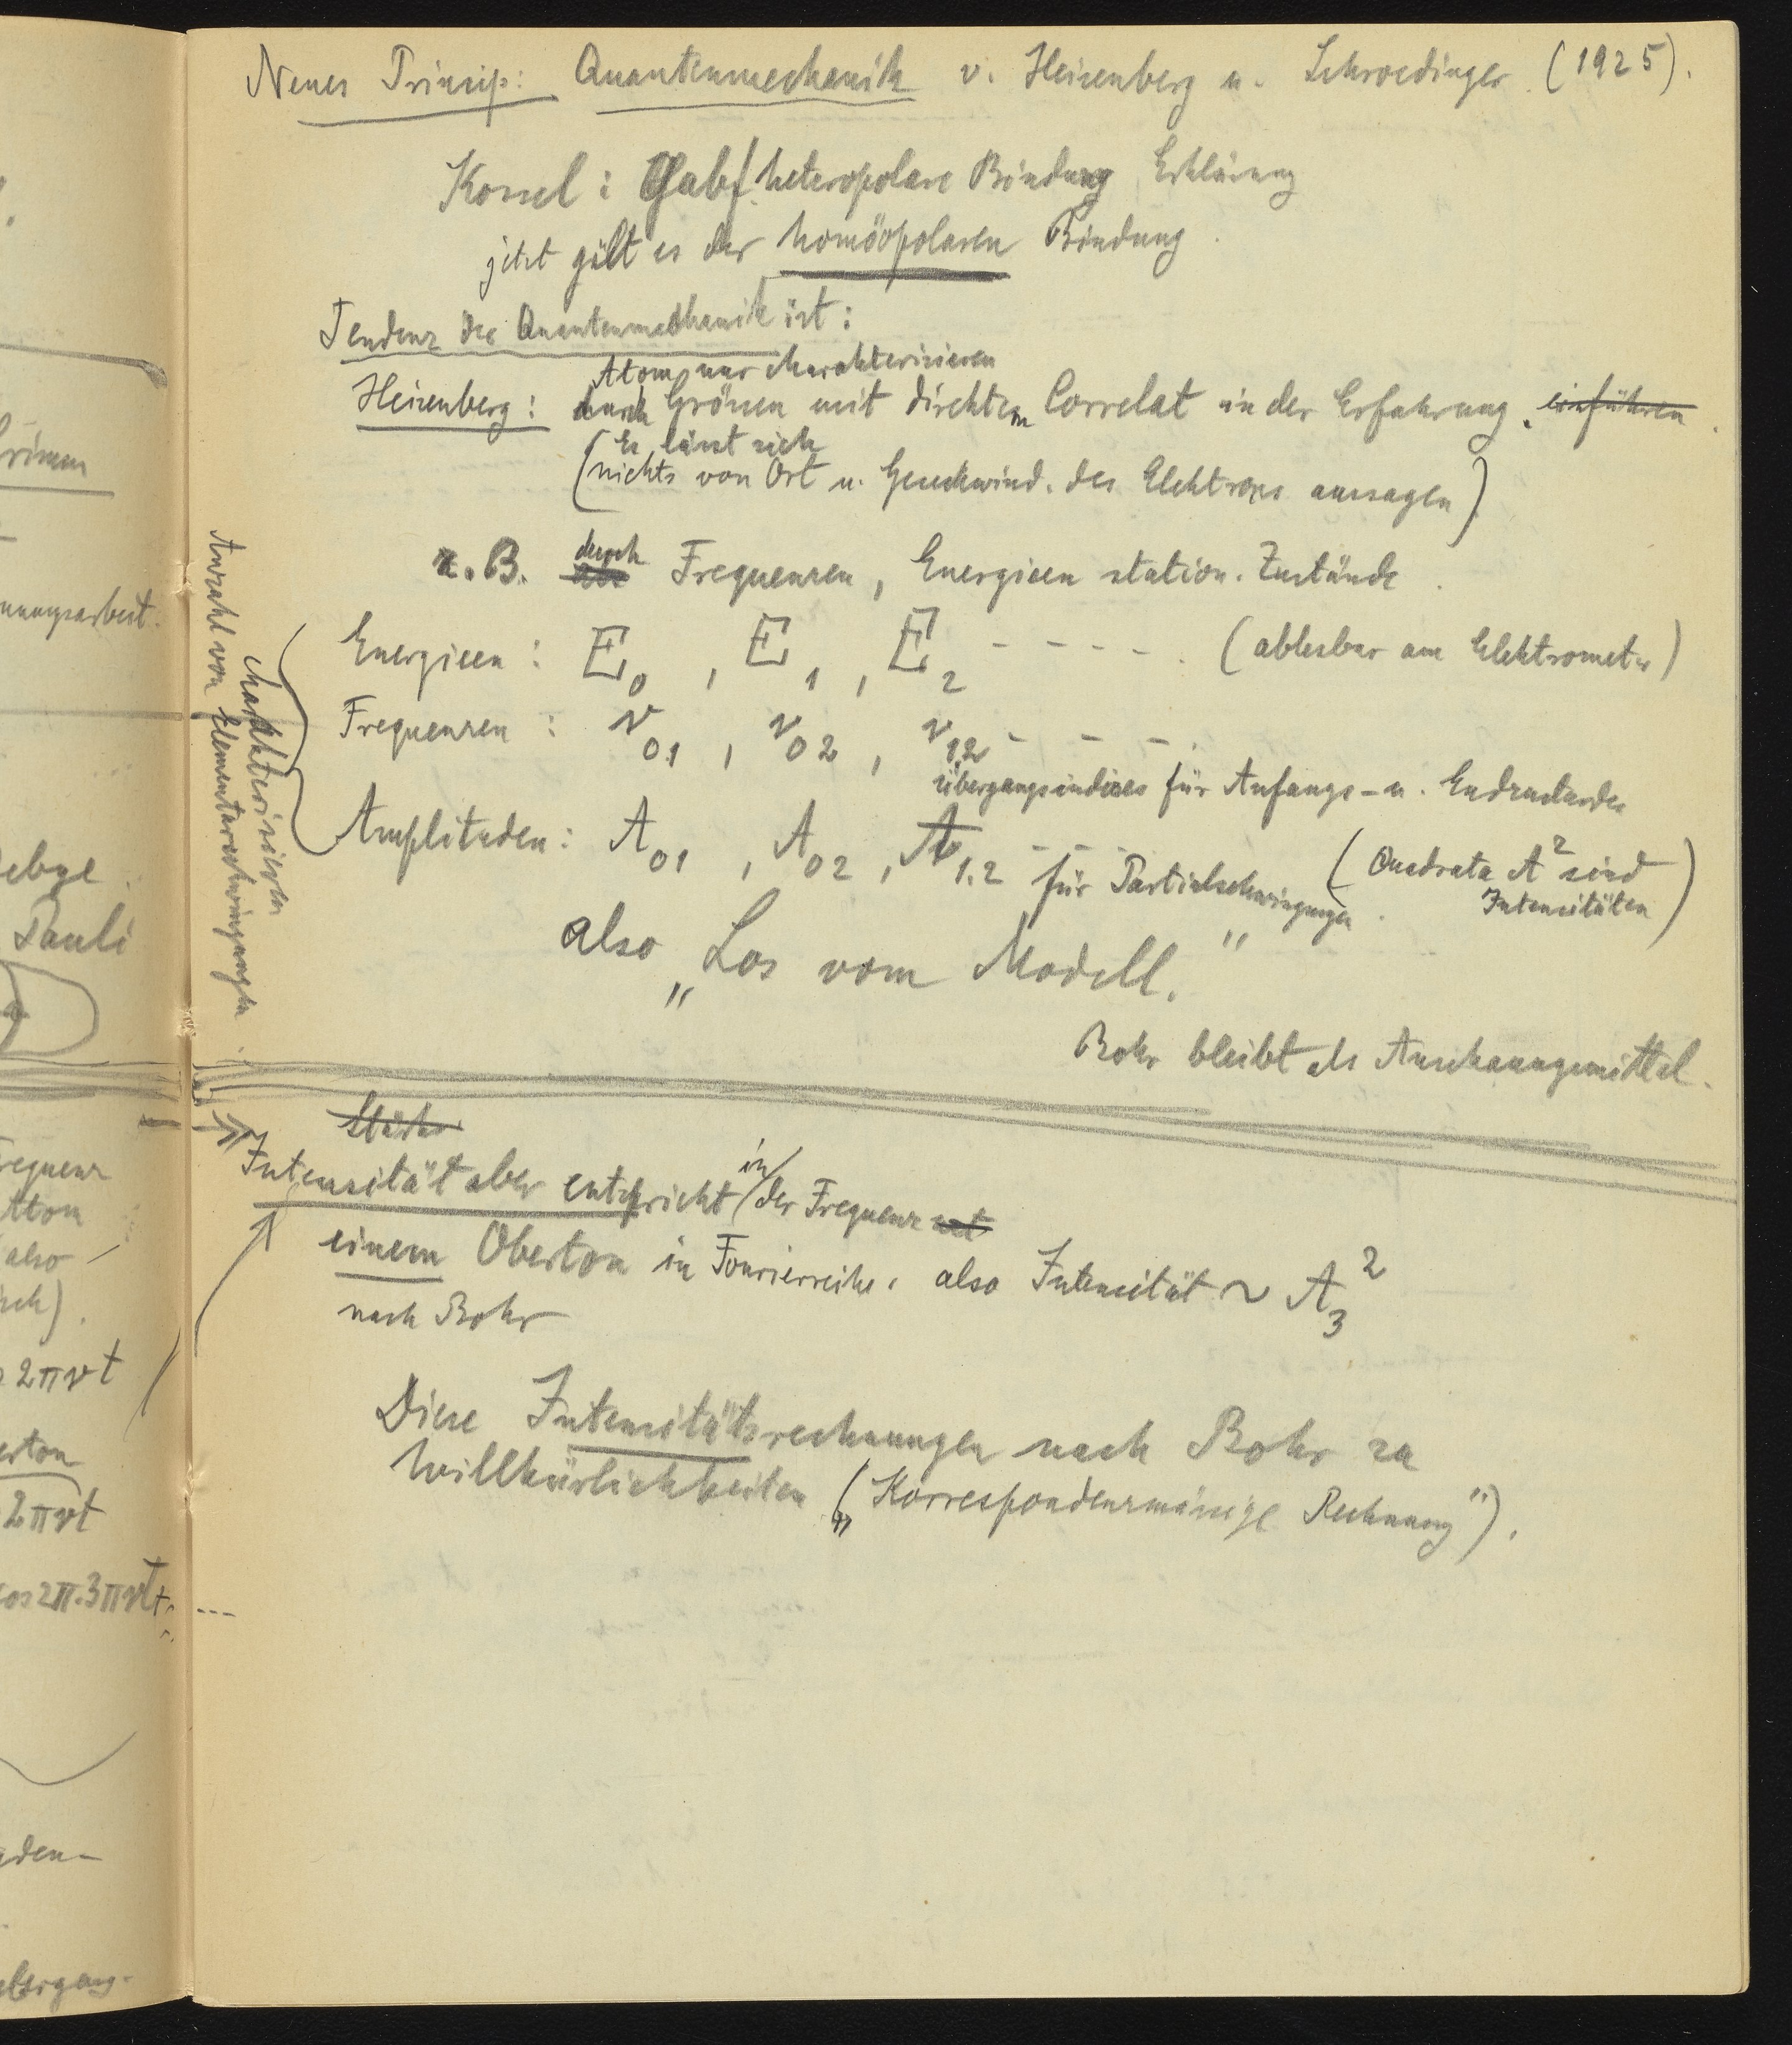 Neues Prinzip: Quantenmechanik v. Heisenberg u. Schroedinger (1925).
Kossel: Gab f. heteropolare Bindung Erklärung
jetzt gilt es der homöopolaren Bindung.
Tendenz der Quantenmechanik ist:
Atom nur charakterisieren
Heisenberg: durch Grössen mit direktem Correlat in der Erfahrung. einführen
(Es lässt sich
nichts von Ort u. Geschwind. des Elektrons aussagen)
z.B. durch Frequenzen, Energieen station. Zustände.
Energieen: E₀, E₁, E₂ ----- (ablesbar am Elektrometer)
Frequenzen: ν₀₁, ν₀₂, ν₁₂ ---
Übergangsindices für Anfangs- u. Endzustandes
Amplituden: A₀₁, A₀₂, A₁.₂ --- für Partialschwingungen. (Quadrate A² sind
Intensitäten)
charakterisieren
Anzahl von Elementarschwingungen
also „Los vom Modell."
Bohr bleibt als Anschauungsmittel.
Stärke
Intensität aber entspricht in der Frequenz
einem Oberton in Fourierreihe, also Intensität ~ A₃²
nach Bohr
Diese Intensitätsrechnungen nach Bohr zu
Willkürlichkeiten („Korrespondenzmässige Rechnung").
nungsarbeit.
Debye
Pauli
Frequenz
Atom
also
2πνt
2πνt
cos2π.3πνt+ ---